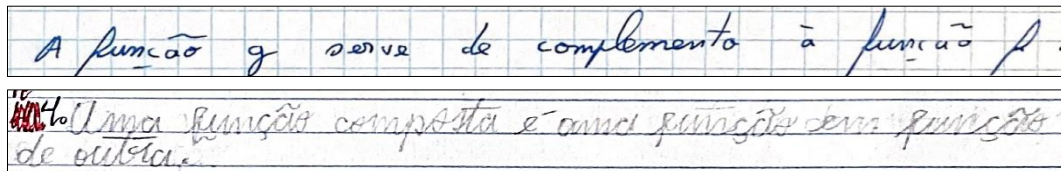 A função g serve de complemento à função f.
4. Uma função composta é uma função em função
de outra.